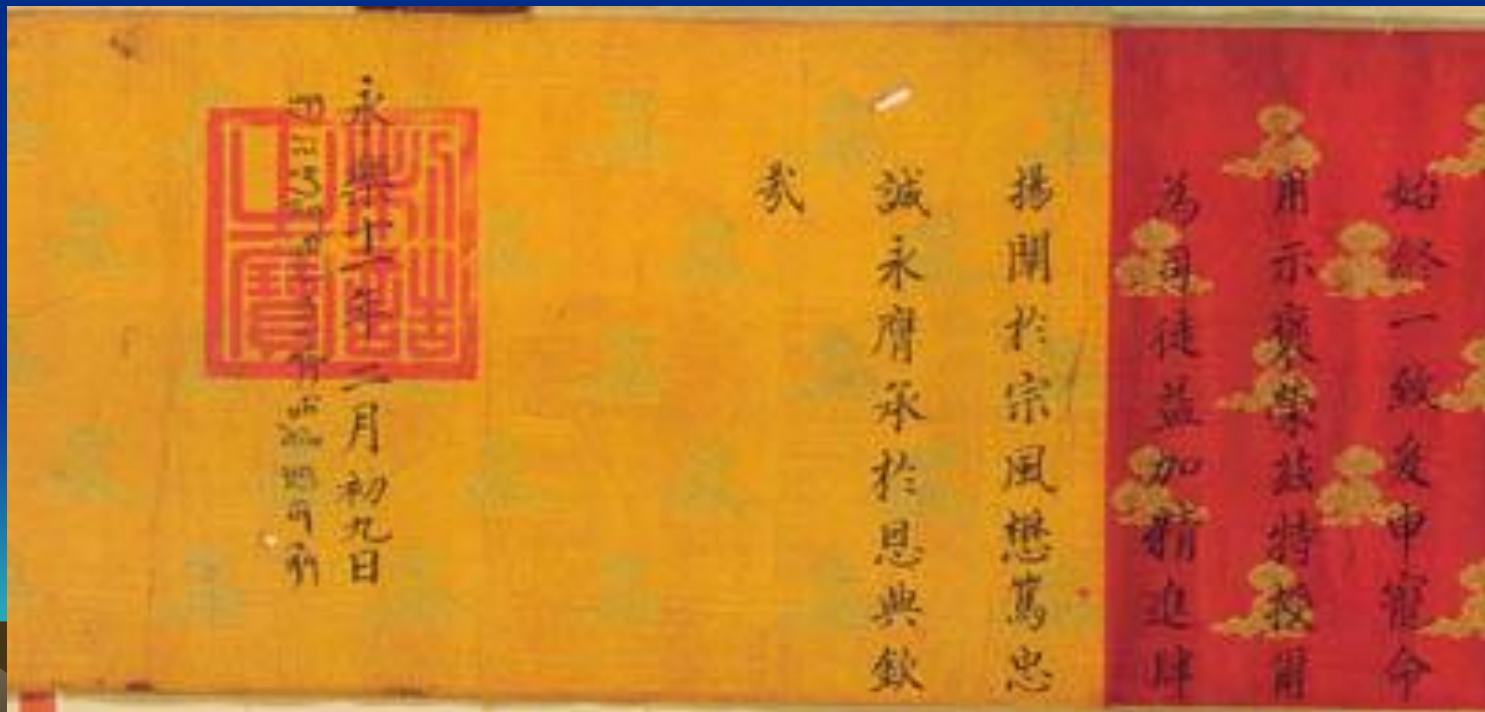 始終一致爰申寵命
用示褒榮茲特授爾
為司徒益加精進肆
揚闡於宗風懋篤忠
誠永膺承於恩典欽
哉
永樂十一年二月初九日
制誥
之寶